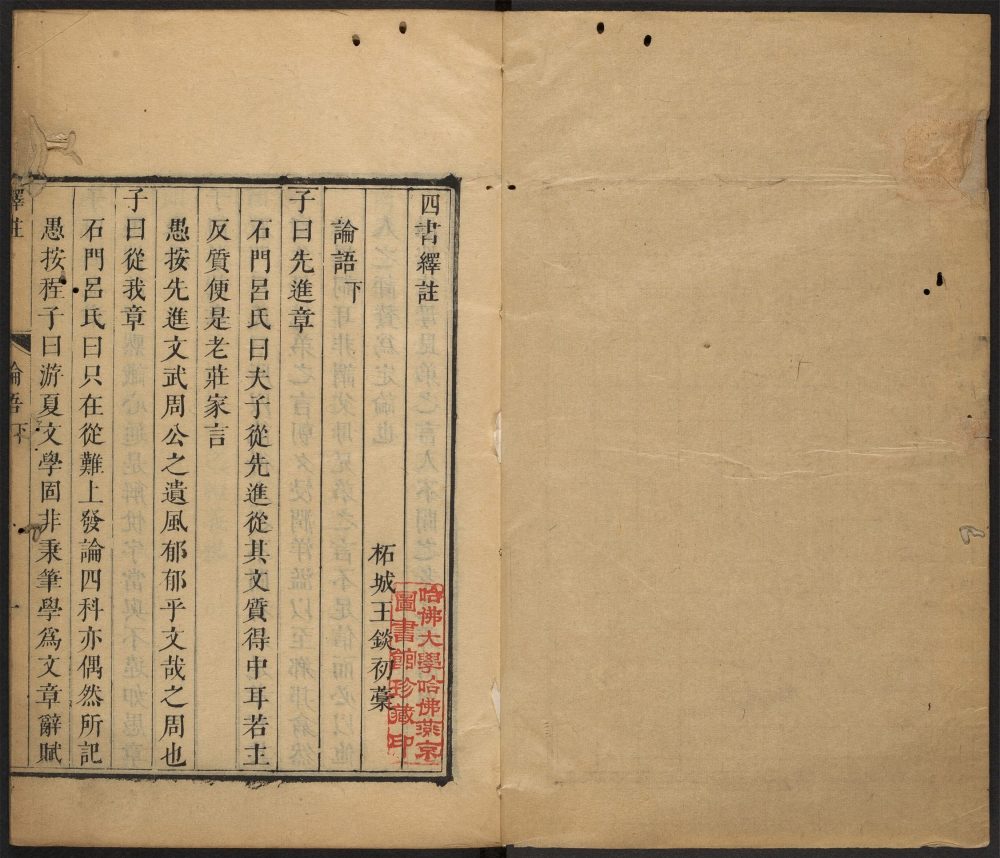 四書繹註
柘城王錟初藳
論語下
子曰先進章
石門呂氏曰夫子從先進從其文質得中耳若主
反質便是老莊家言
愚按先進文武周公之遺風郁郁乎文哉之周也
子曰從我章
石門呂氏曰只在從難上發論四科亦偶然所記
愚按程子曰游夏文學固非秉筆學爲文章辭賦
繹註
論語下
一
哈佛大學哈佛燕京
圖書館珍藏印